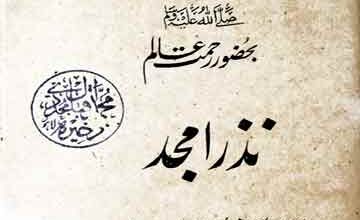 صلی اللہ علیہ وسلم
بحضور رحمت عالم
نذر امجد
ذخیرہ